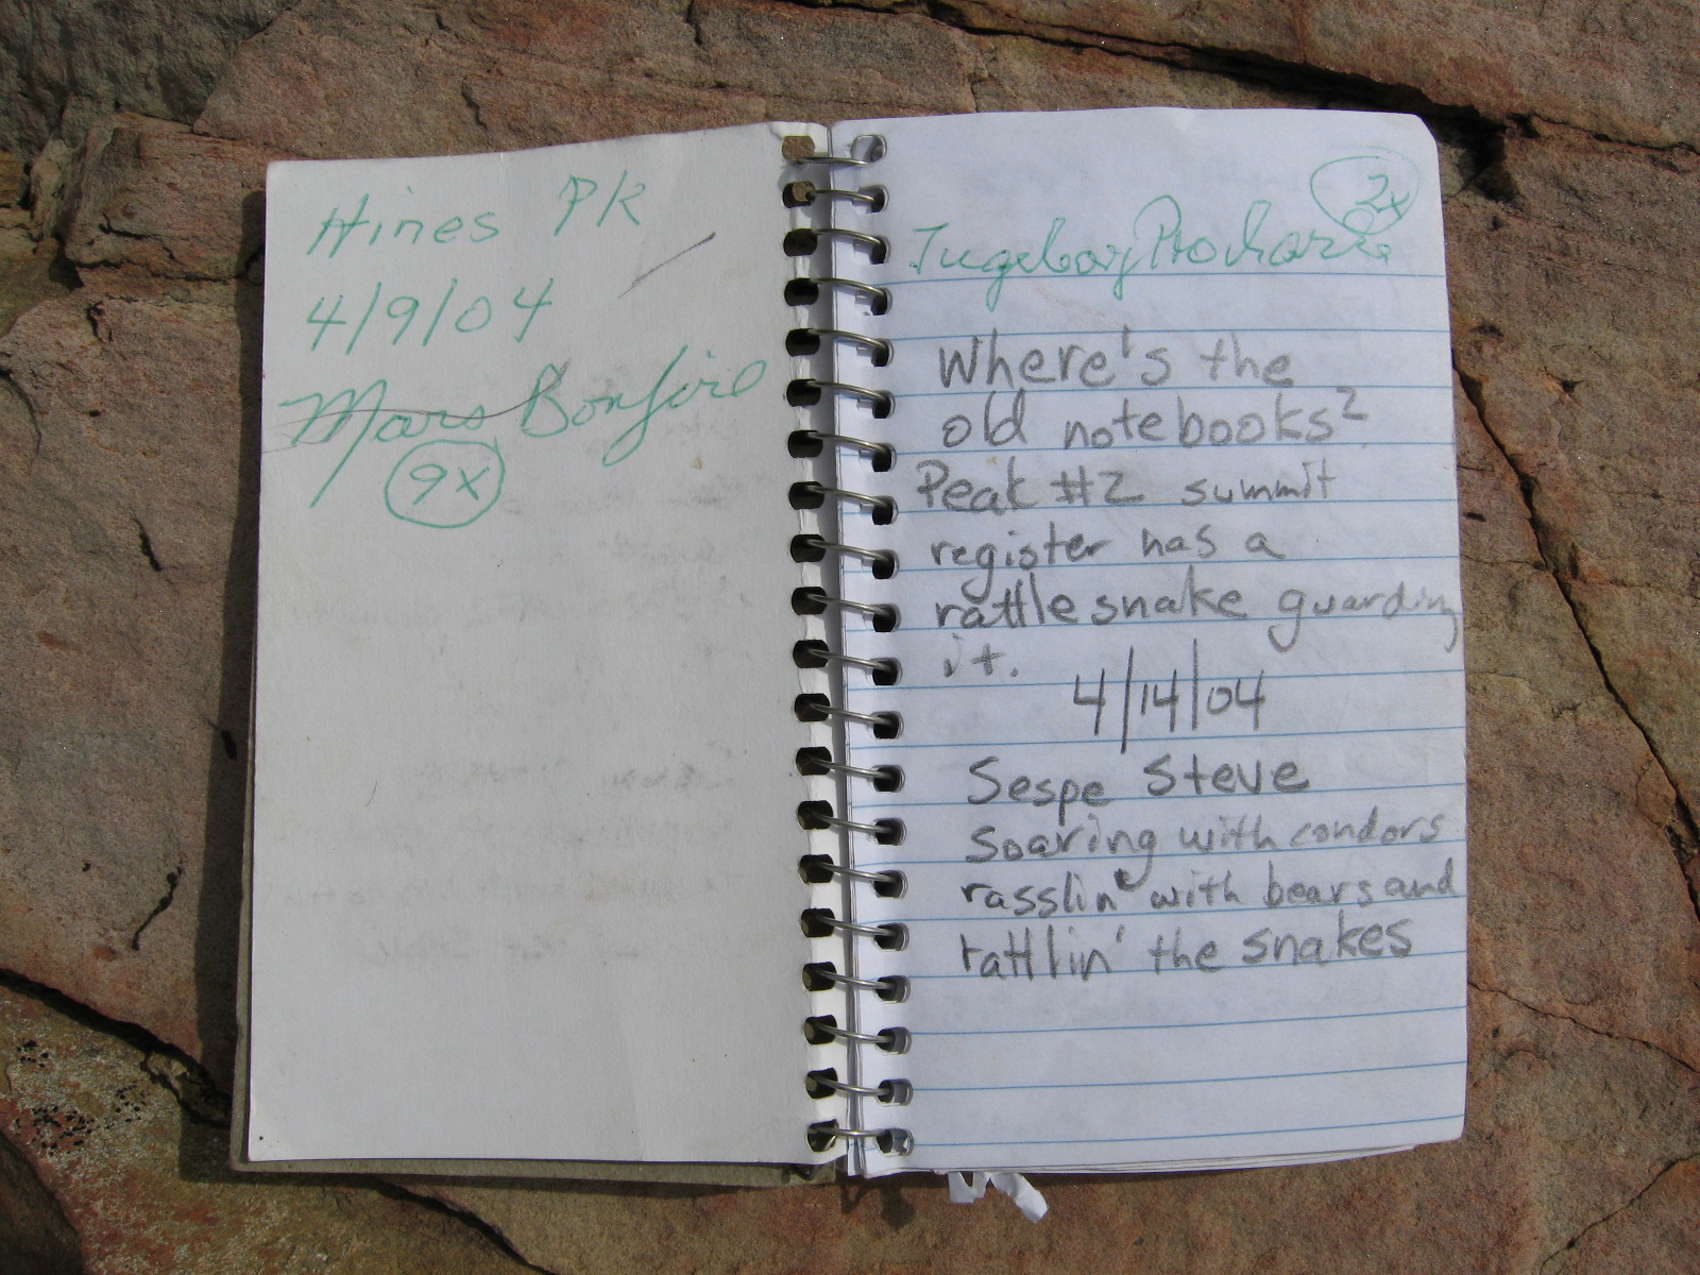 Hines PK
4/9/04
Mars Bonfire
9x
2x
Where's the
old notebooks?
Peak #2 summit
register has a
rattlesnake guarding
it.
4/14/04
Sespe Steve
soaring with condors
rasslin' with bears and
rattlin' the snakes